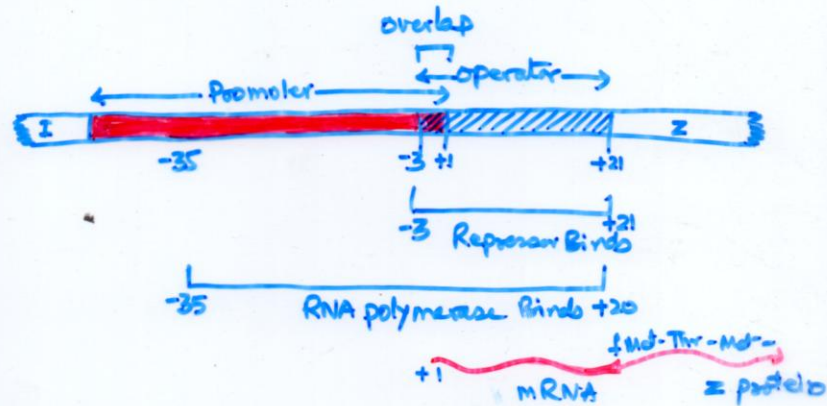 overlap
operator
Promoter
I
Z
-35
-3 +1
+21
-3
+21
Repressor Binds
-35
RNA polymerase Binds +20
fMet-Thr-Met-
+1
mRNA
Z protein